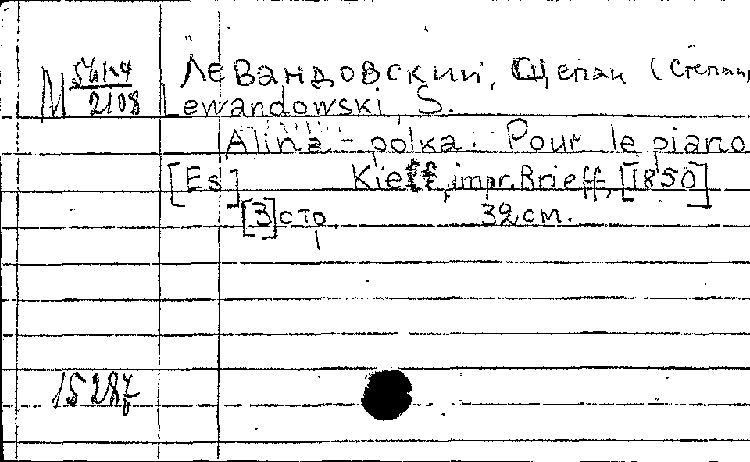 М 561-4/2108
Левандовский, Щепан (Степан,
Lewandowski, S.
Alina-polka. Pour le piano
[Es] Kieff, impr. Brieff, [1850]
[3] стр. 32 см.
15287